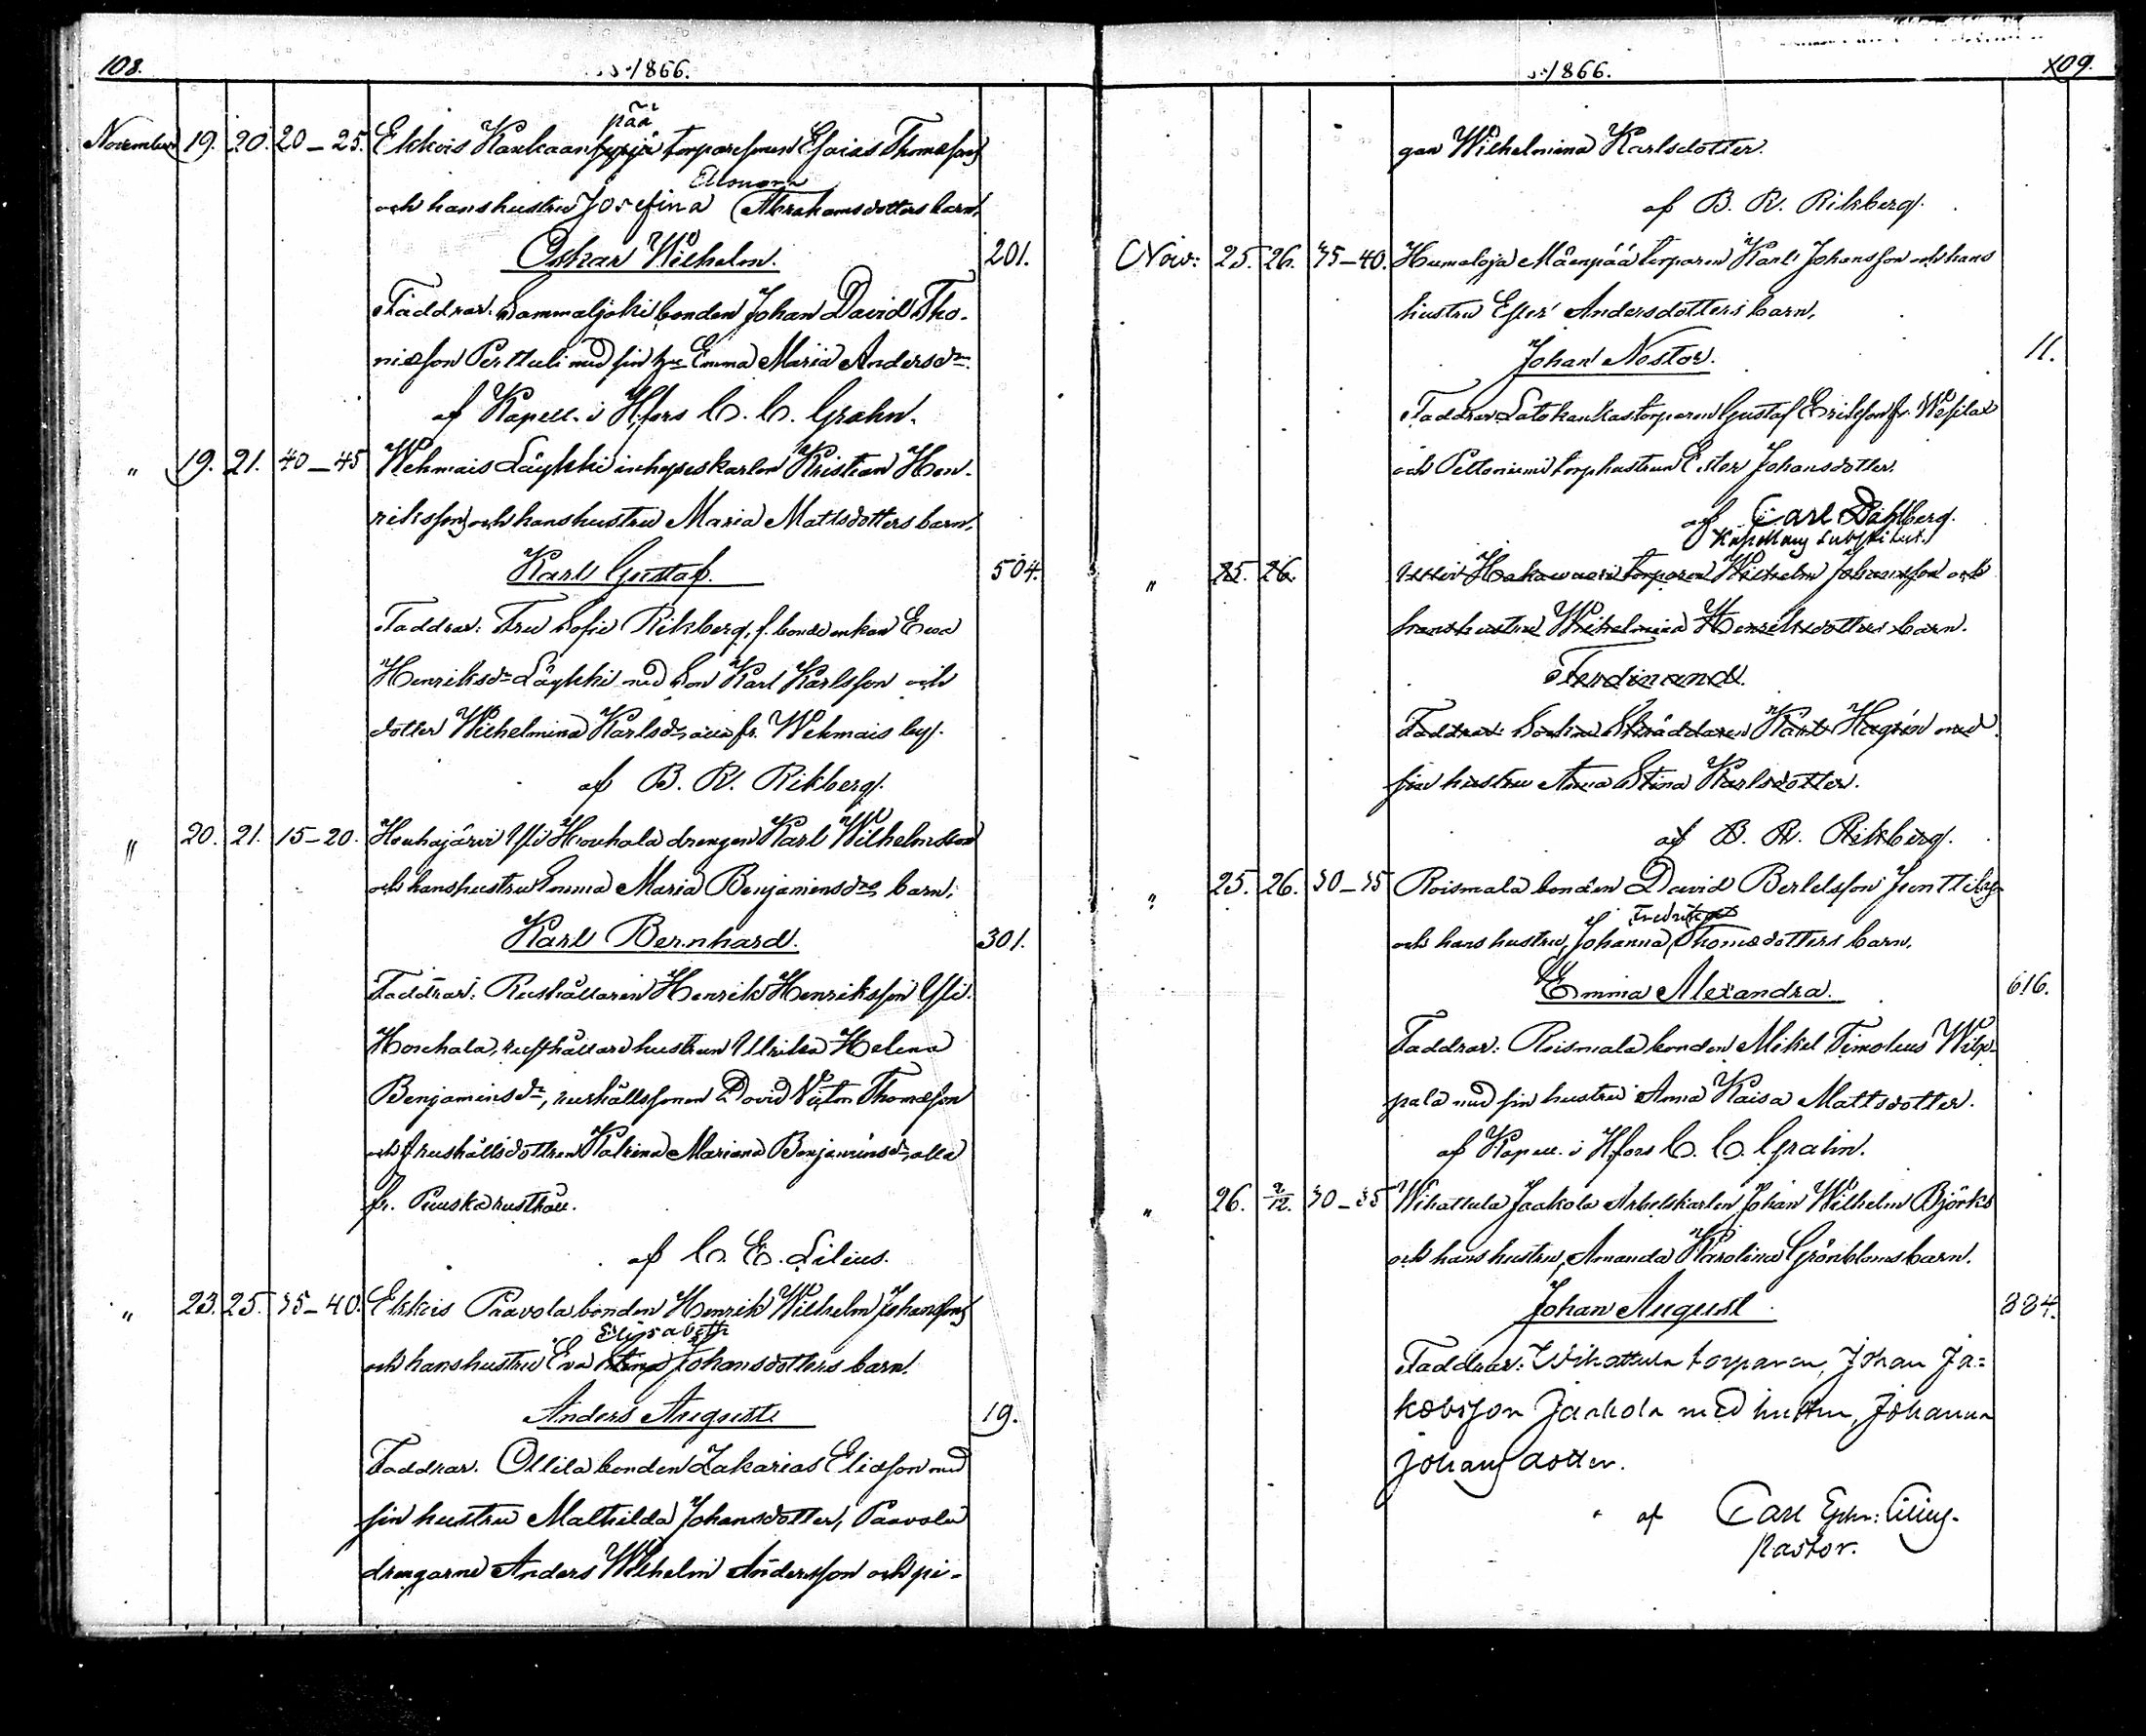 108.
1866.
på̃ä
November 19. 20. 20–25. Ekkois Kaukaan torparesonen Esaias Thomasson
Elleonora
och hans hustru Josefina Abrahamsdotters barn,
Oskar Wilhelm. 201.
Faddrar: Sammaljoki bonden Johan David Tho-
masson Perttuli med sin h:u Emma Maria Andersdr.
af Kapell. i H:fors C. C. Grahn.
" 19. 21. 40–45 Wehmais Läykki inhyseskarlen Kristian Hen-
riksson och hans hustru Maria Mattsdotters barn,
Karl Gustaf. 504.
Faddrar: Fru Sofie Rikberg, f. bondeenkan Eva
Henriksdr Läykki med Son Karl Karlsson och
dotter Wilhelmina Karlsdr alla fr. Wehmais by.
af B. R. Rikberg.
" 20. 21. 15–20. Houhajärvi Yli Houhala drengen Karl Wilhelmsson
och hans hustru Emma Maria Benjaminsdrs barn,
Karl Bernhard. 301.
Faddrar: Rusthållaren Henrik Henriksson Yli
Houhala, rusthållare hustrun Ulrika Helena
Benjaminsdr, rusthållssonen David Victor Thomasson
och rusthållsdottren Katrina Mariana Benjaminsdr, alla
fr. Puuska rusthåll.
af C. E. Lilius.
" 23. 25. 35–40. Ekkois Paavola bonden Henrik Wilhelm Johansson
Elisabeth
och hans hustru Eva Stina Johansdotters barn.
Anders August 19.
Faddrar. Ollila bonden Zakarias Eliasson med
sin hustru Mathilda Johansdotter, Paavola
drengarne Anders Wilhelm Andersson och pi-
1866.
109.
gan Wilhelmina Karlsdotter.
af B. R. Rikberg.
Nov: 25. 26. 35–40. Humaloja Mäenpää torparen Karl Johansson och hans
hustru Ester Andersdotters barn,
Johan Nestor. 11.
Faddrar. Latokankas torparen Gustaf Eriksson fr. Wesilax
och Peltoniemi torphustrun Ester Johansdotter.
af Carl Dahlberg.
Kapellans Substitut.
" 25. 26. Hakamaen torparen Wilhelm Johansson och
hans hustru Wilhelmina Henriksdotters barn.
Ferdinand.
Faddrar: Skräddaren Karl Hagrén med
sin hustru Anna Stina Karlsdotter.
af B. R. Rikberg.
" 25. 26. 30–35 Roismala bonden David Bertelsson Junttila
Fredrika
och hans hustru, Johanna Thomasdotters barn,
Emma Alexandra. 616.
Faddrar: Roismala bonden Mikel Timoteus Wilp-
pala med sin hustru Anna Kaisa Mattsdotter.
af Kapell. i H:fors C. C. Grahn.
" 26. 2/12. 30–35 Wihattula Jaakola Arbetskarlen Johan Wilhelm Björks
och hans hustru, Amanda Karolina Grönbloms barn.
Johan August 884.
Faddrar: Wihattula torparen, Johan Ja-
kobsson Jaakola med hustru, Johanna
Johansdotter.
af Carl Ephr: Lilius.
Pastor.